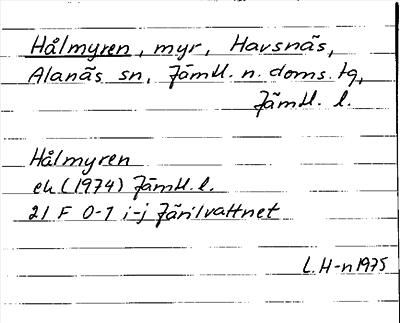 Hålmyren, myr, Havsnäs,
Alanäs sn, Jämtl. n. doms. tg,
Jämtl. l.
Hålmyren
ek (1974) Jämtl. l.
21 F 0-1 i-j Järilvattnet
L. H-n 1975